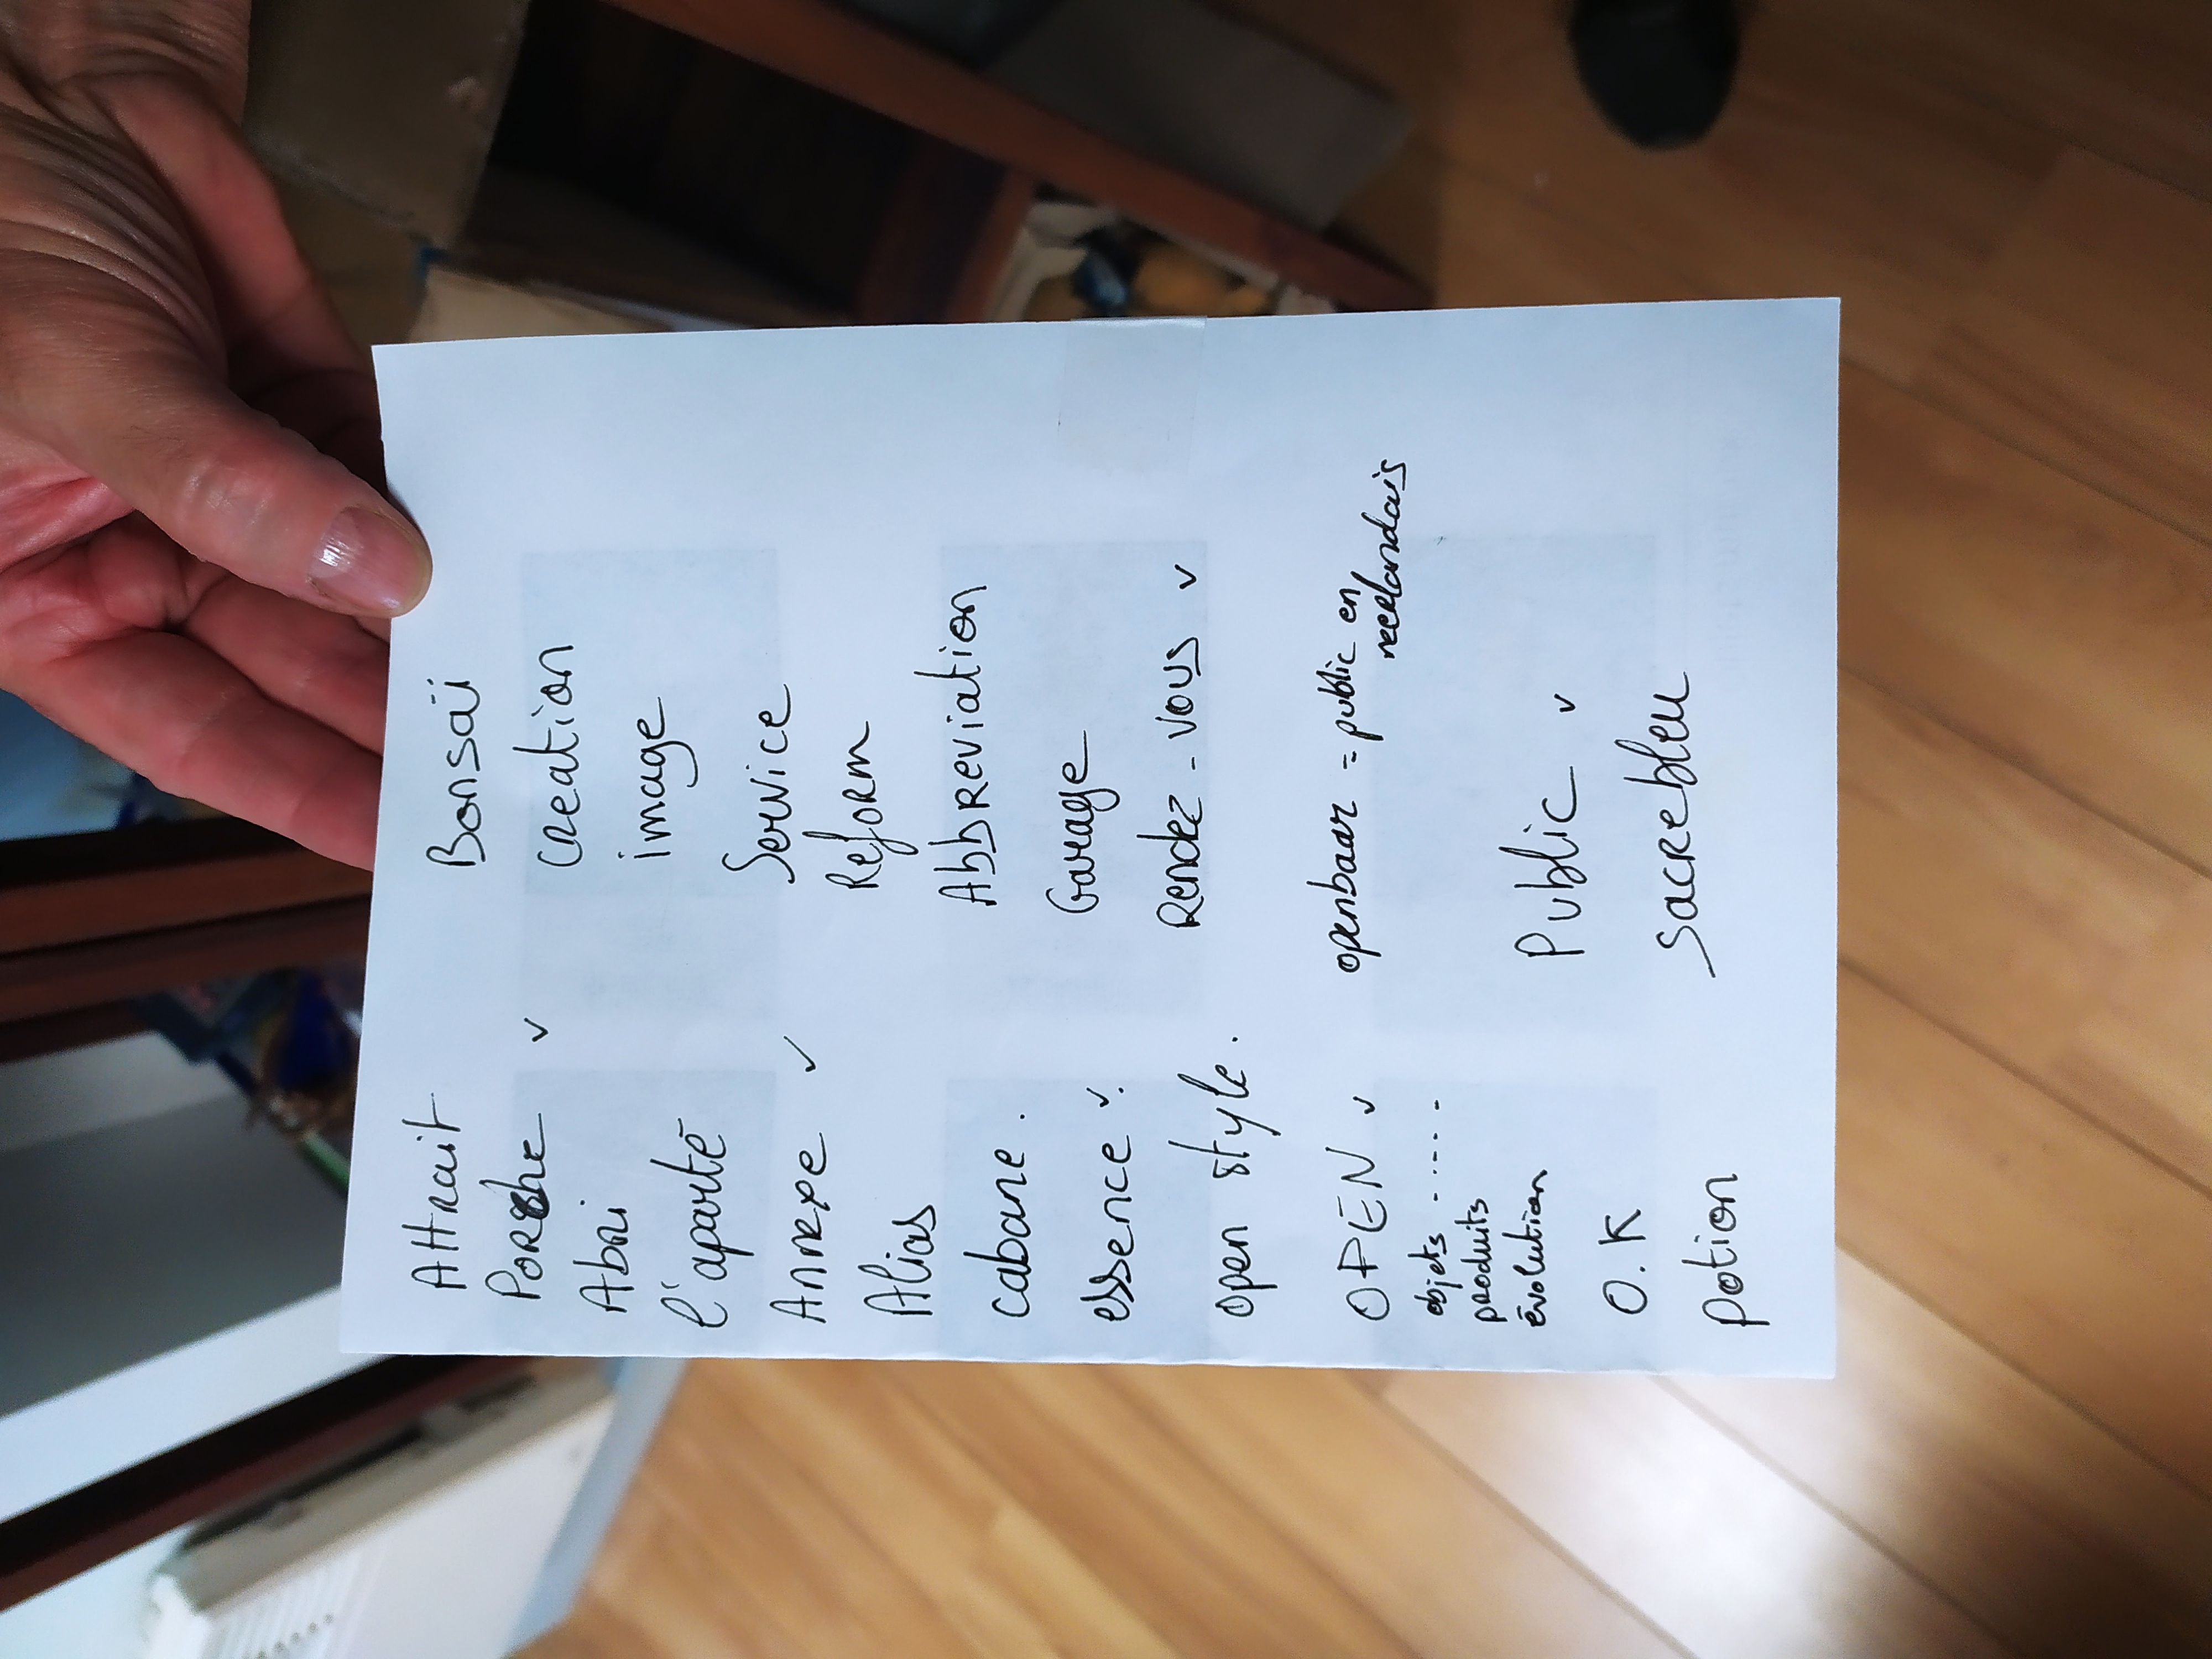 Attrait
Porche ✓
Abri
l'aparté
Annexe ✓
Alias
cabane .
essence ✓.
open style .
OPEN ✓
objets - . - . -
produits
évolution
O.K
potion
Bonsaï
creation
image
Service
Reform
Abbreviation
Garage
Rendez-vous ✓
openbaar = public en
neerlandais
Public ✓
sacrebleu